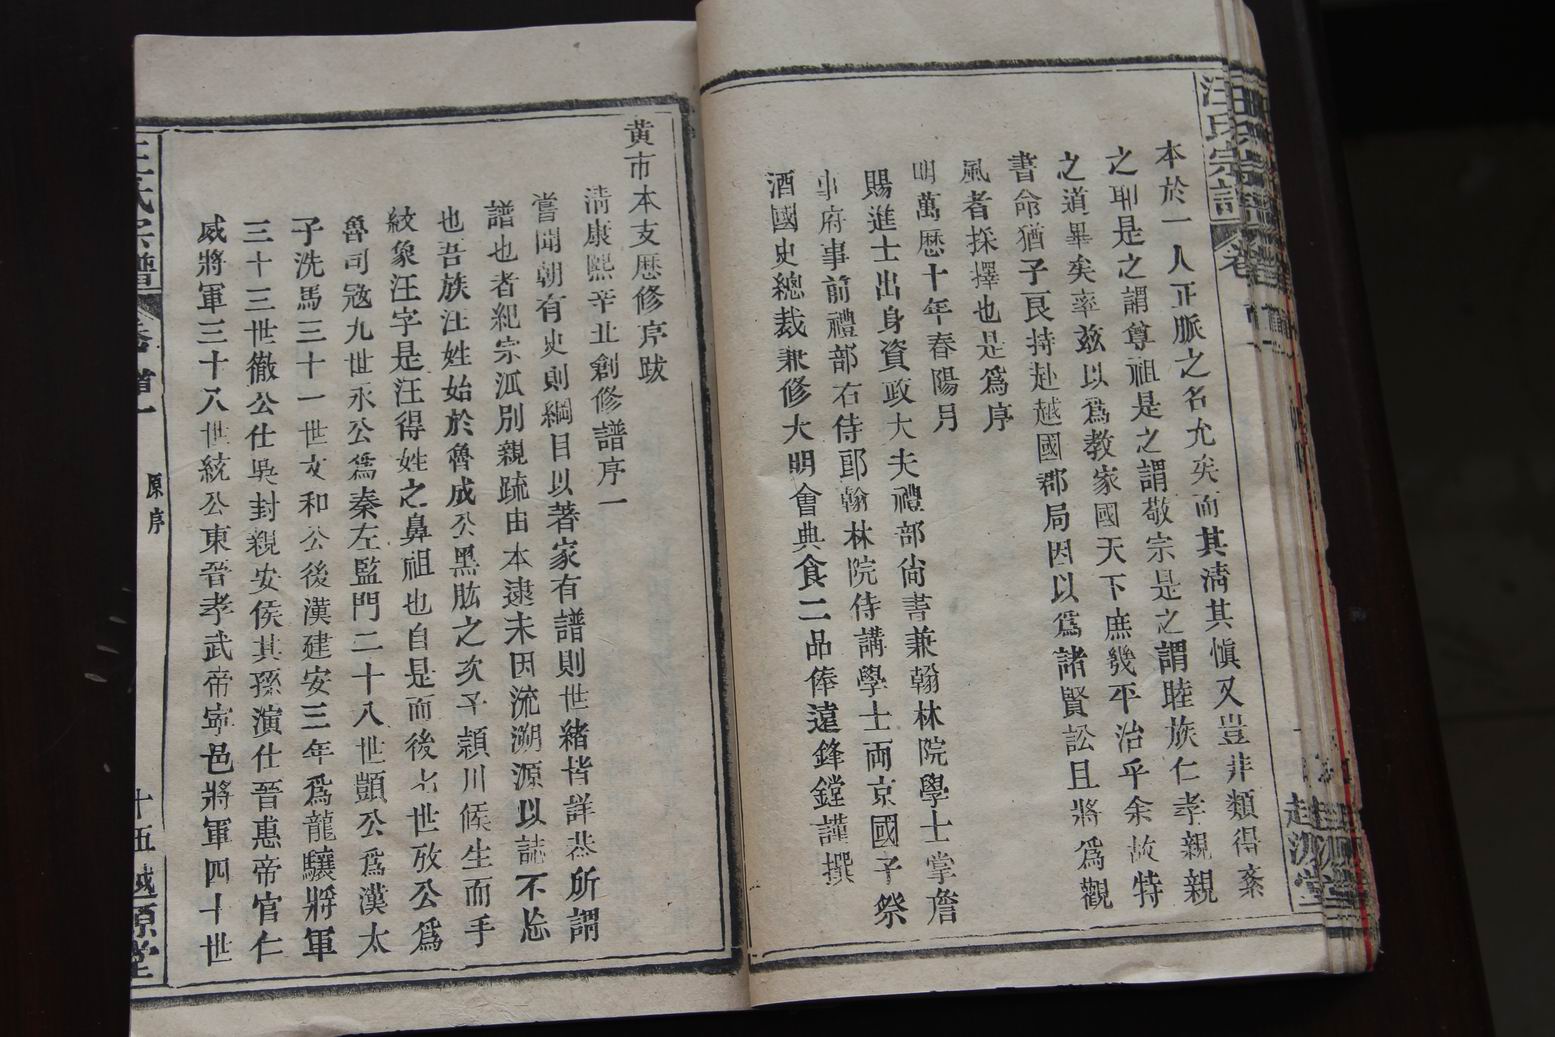 汪氏宗譜
卷首
越源堂
本於一人正脈之名允矣而其淸其愼又豈非類得紊
之耶是之謂尊祖是之謂敬宗是之謂睦族仁孝親親
之道畢矣率玆以爲教家國天下庶幾平治乎余故特
書命猶子良持赴越國郡局因以爲諸賢訟且將爲觀
風者採擇也是爲序
明萬歷十年春陽月
賜進士出身資政大夫禮部尙書兼翰林院學士掌詹
事府事前禮部右侍郎翰林院侍講學士両京國子祭
酒國史總裁兼修大明會典食二品俸遠鋒鏜謹撰
黃市本支歷修序跋
淸康熙辛丑創修譜序一
嘗聞朝有史則綱目以著家有譜則世緒皆詳恭所謂
譜也者紀宗派別親疏由本逮末因流溯源以誌不忘
也吾族汪姓始於魯成公黑肱之次子潁川候生而手
紋象汪字是汪得姓之鼻祖也自是而後七世放公爲
魯司寇九世永公爲秦左監門二十八世顗公爲漢太
子洗馬三十一世文和公後漢建安三年爲龍驤將軍
三十三世徹公仕吳封親安侯其孫演仕晉惠帝官仁
威將軍三十八世統公東晉孝武帝寧邑將軍四十世
汪氏宗譜
卷首一
原序
十五
越源堂